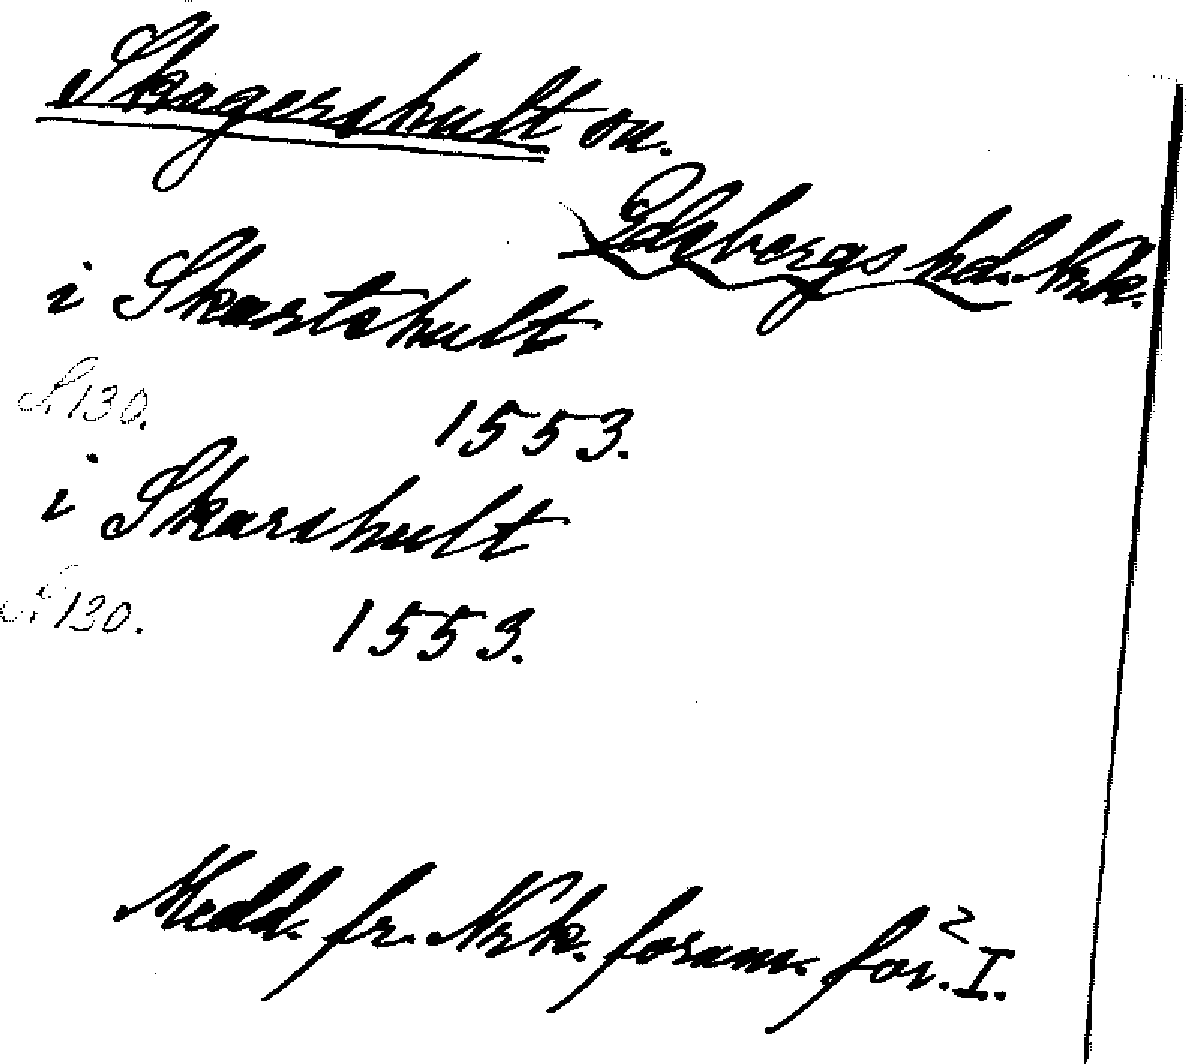 Skagershult sn.
Edsbergs hd. Nrk.
i Skartshult
N 130.
1553.
i Skarshult
N 130.
1553.
Medd. fr. Nrk. fornm. för. I.²